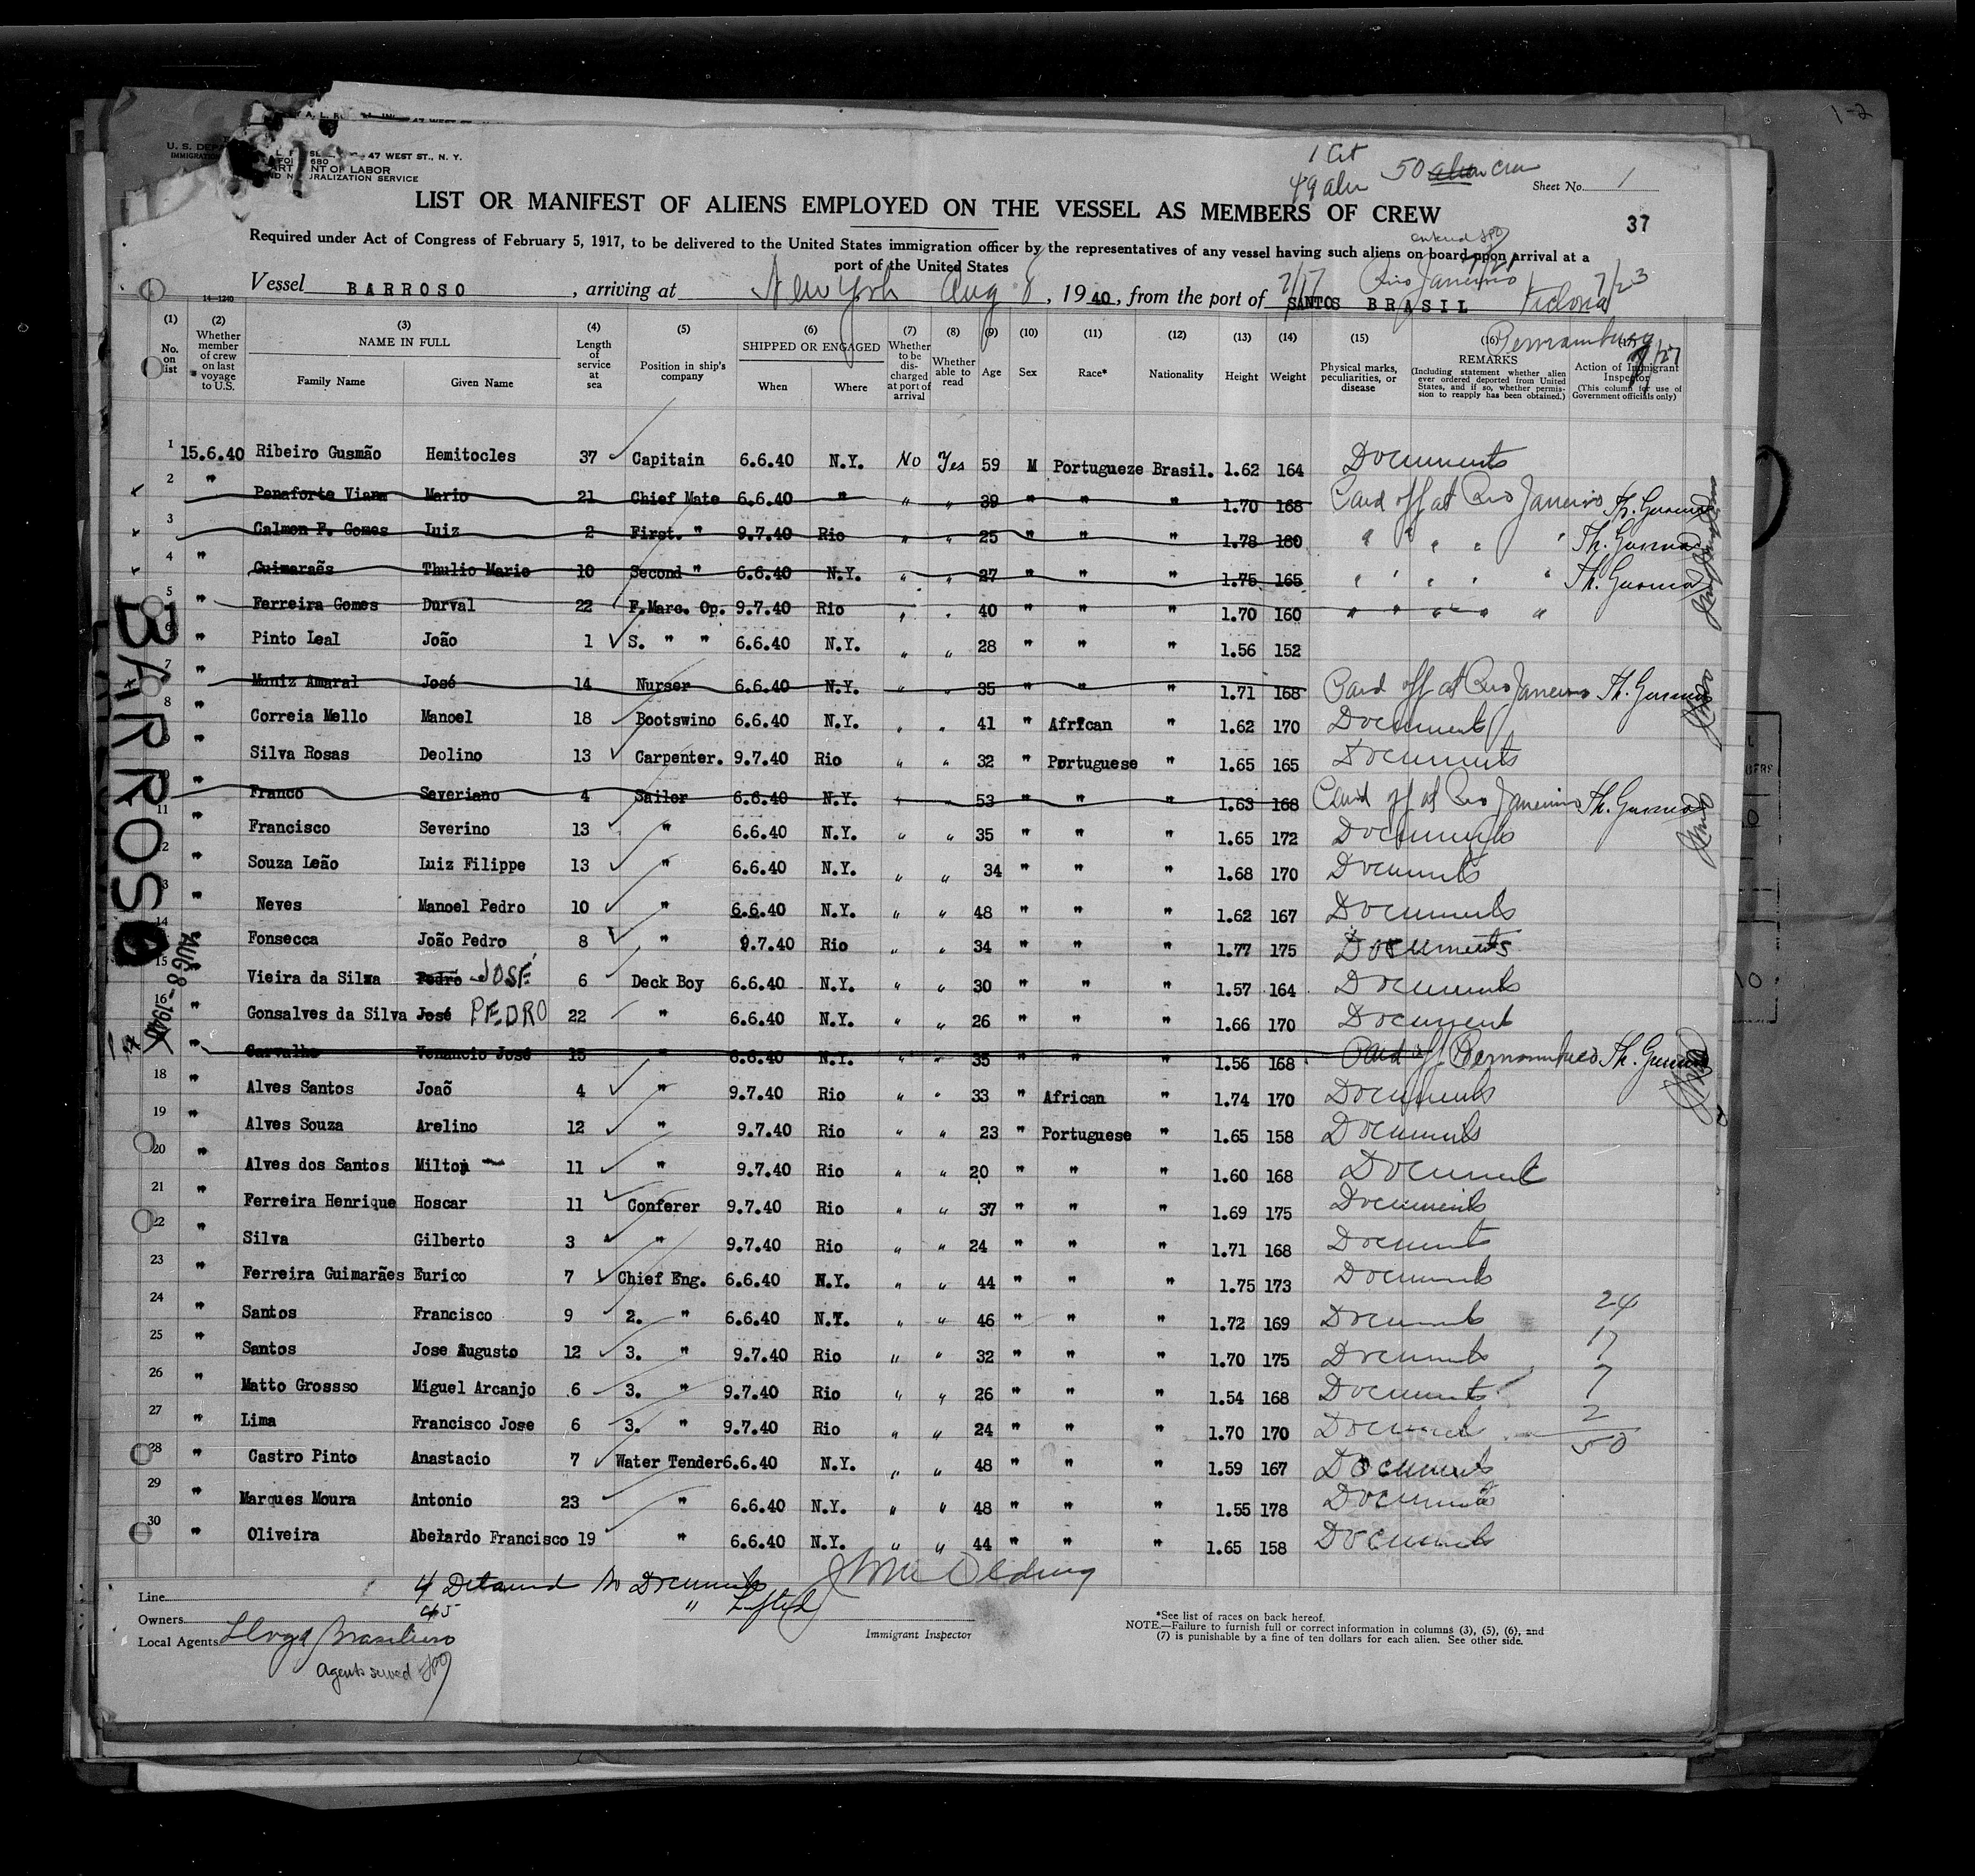 1-2
47 WEST ST., N. Y.
U. S. DEPARTMENT OF LABOR
IMMIGRATION AND NATURALIZATION SERVICE
1 Cit
49 aln 50 alien crew
Sheet No. 1
LIST OR MANIFEST OF ALIENS EMPLOYED ON THE VESSEL AS MEMBERS OF CREW
37
Required under Act of Congress of February 5, 1917, to be delivered to the United States immigration officer by the representatives of any vessel having such aliens on board upon arrival at a
port of the United States
Vessel BARROSO, arriving at New York Aug 8, 1940, from the port of SANTOS BRASIL 7/17 Rio Janeiro 7/21 Victoria 7/23
Pernambuco 7/27
14-1240
(1) No. on list
(2) Whether member of crew on last voyage to U.S.
(3) NAME IN FULL Family Name Given Name
(4) Length of service at sea
(5) Position in ship's company
(6) SHIPPED OR ENGAGED When Where
(7) Whether to be discharged at port of arrival
(8) Whether able to read
(9) Age
(10) Sex
(11) Race*
(12) Nationality
(13) Height
(14) Weight
(15) Physical marks, peculiarities, or disease
(16) REMARKS (Including statement whether alien ever ordered deported from United States, and if so, whether permission to reapply has been obtained.)
(17) Action of Immigrant Inspector (This column for use of Government officials only)
1 15.6.40 Ribeiro Gusmão Hemitocles 37 Capitain 6.6.40 N.Y. No Yes 59 M Portugueze Brasil. 1.62 164 Documents
2 " Penaforte Viana Mario 21 Chief Mate 6.6.40 " " " 39 " " " 1.70 168 Paid off at Rio Janeiro Th. Gusmao
3 Calmon P. Gomes Luiz 2 First. " 9.7.40 Rio " " 25 " " " 1.78 180 " " " " " Th. Gusmao
4 " Guimaraẽs Thulio Mario 10 Second " 6.6.40 N.Y. " " 27 " " " 1.75 165 " " " " " Th. Gusmao
5 " Ferreira Gomes Durval 22 F.Marc. Op. 9.7.40 Rio " " 40 " " " 1.70 160 " " " " "
6 " Pinto Leal João 1 S. " " 6.6.40 N.Y. " " 28 " " " 1.56 152
7 " Muniz Amaral José 14 Nurser 6.6.40 N.Y. " " 35 " " " 1.71 168 Paid off at Rio Janeiro Th. Gusmao
8 " Correia Mello Manoel 18 Bootswino 6.6.40 N.Y. " " 41 " African " 1.62 170 Documents
9 " Silva Rosas Deolino 13 Carpenter. 9.7.40 Rio " " 32 " Portuguese " 1.65 165 Documents
" Franco Severiano 4 Sailor 6.6.40 N.Y. " " 53 " " " 1.63 168 Paid off at Rio Janeiro Th. Gusmao
11 " Francisco Severino 13 " 6.6.40 N.Y. " " 35 " " " 1.65 172 Documents
12 " Souza Leão Luiz Filippe 13 " 6.6.40 N.Y. " " 34 " " " 1.68 170 Documents
13 " Neves Manoel Pedro 10 " 6.6.40 N.Y. " " 48 " " " 1.62 167 Documents
14 " Fonsecca João Pedro 8 " 9.7.40 Rio " " 34 " " " 1.77 175 Documents
15 " Vieira da Silva Pedro JOSÉ 6 Deck Boy 6.6.40 N.Y. " " 30 " " " 1.57 164 Documents
16 " Gonsalves da Silva José PEDRO 22 " 6.6.40 N.Y. " " 26 " " " 1.66 170 Document
17 " Carvalho Venancio José 15 " 6.6.40 N.Y. " " 35 " " " 1.56 168 Paid off Pernambuco Th. Gusmao
18 " Alves Santos Joaõ 4 " 9.7.40 Rio " " 33 " African " 1.74 170 Documents
19 " Alves Souza Arelino 12 " 9.7.40 Rio " " 23 " Portuguese " 1.65 158 Documents
20 " Alves dos Santos Milton 11 " 9.7.40 Rio " " 20 " " " 1.60 168 Document
21 " Ferreira Henrique Hoscar 11 Conferer 9.7.40 Rio " " 37 " " " 1.69 175 Documents
22 " Silva Gilberto 3 " 9.7.40 Rio " " 24 " " " 1.71 168 Documents
23 " Ferreira Guimarães Eurico 7 Chief Eng. 6.6.40 N.Y. " " 44 " " " 1.75 173 Documents
24 " Santos Francisco 9 2. " 6.6.40 N.Y. " " 46 " " " 1.72 169 Documents 24
25 " Santos Jose Augusto 12 3. " 9.7.40 Rio " " 32 " " " 1.70 175 Documents 17
26 " Matto Grossso Miguel Arcanjo 6 3. " 9.7.40 Rio " " 26 " " " 1.54 168 Documents 7
27 " Lima Francisco Jose 6 3. " 9.7.40 Rio " " 24 " " " 1.70 170 Document 2
50
28 " Castro Pinto Anastacio 7 Water Tender 6.6.40 N.Y. " " 48 " " " 1.59 167 Documents
29 " Marques Moura Antonio 23 " 6.6.40 N.Y. " " 48 " " " 1.55 178 Documents
30 " Oliveira Abelardo Francisco 19 " 6.6.40 N.Y. " " 44 " " " 1.65 158 Documents
BARROSO
AUG 8-1940
4 Detained No Documents
45 " Lifted
Line
Owners
Local Agents Lloyd Brasileiro
Agents served
Immigrant Inspector
*See list of races on back hereof.
NOTE.—Failure to furnish full or correct information in columns (3), (5), (6), and
(7) is punishable by a fine of ten dollars for each alien. See other side.